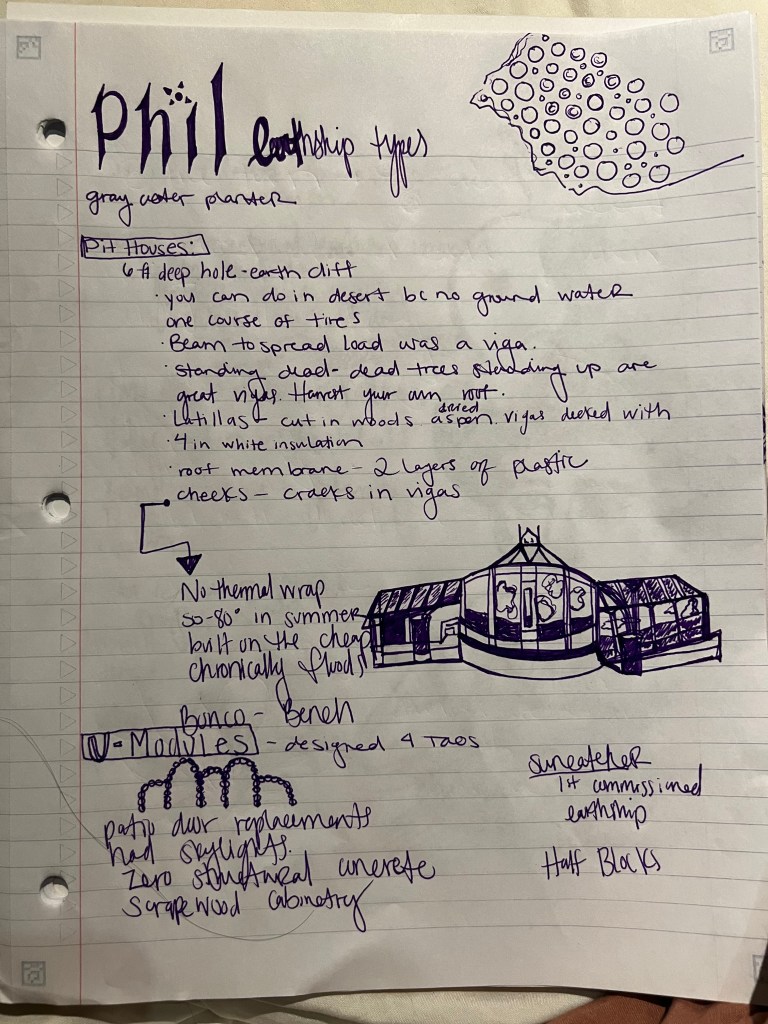 Phil earthship types
gray water planter
Pit Houses:
6 ft deep hole - earth cliff
· you can do in desert bc no ground water
one course of tires
· Beam to spread load was a viga.
· standing dead - dead trees standing up are
great vigas. Harvest your own roof.
· Latillas - cut in woods dried aspen. vigas decked with
· 4 in white insulation
· roof membrane - 2 layers of plastic
· cheeks - cracks in vigas
No thermal wrap
50-80° in summer
built on the cheap
chronically floods
Bunco - Bench
U-Modules - designed 4 Taos
patio door replacements
had skylights.
Zero structural concrete
Scrapewood Cabinetry
suncatcher
1st commissioned
earthship
Half Blocks